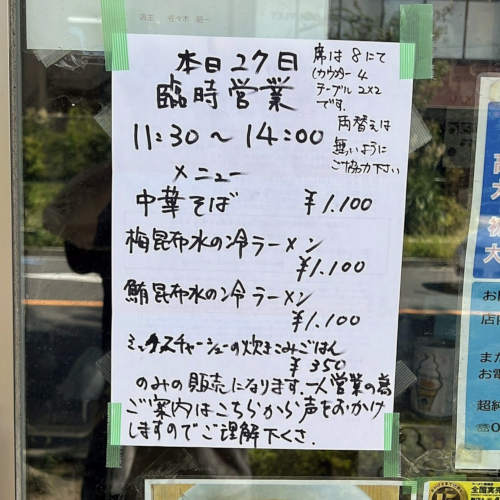 店主 佐々木
本日27日
臨時営業
11:30〜14:00
席は8にて
(カウンター4
テーブル2×2
です。
両替えは
無いように
ご協力下さい
メニュー
中華そば ¥1.100
梅昆布水の冷ラーメン
¥1.100
鮪昆布水の冷ラーメン
¥1.100
ミックスチャーシューの炊きこみごはん
¥350
のみの販売になります.一人営業の為
ご案内はこちらから声をおかけ
しますのでご理解下さい.
お
店
また
お電
超純